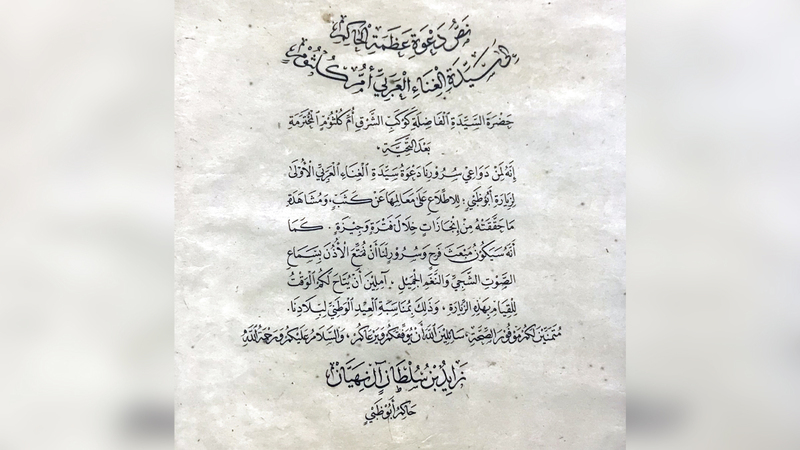 نَصُّ دَعْوَةِ عَظَمَةِ الحَاكِمِ
إِلى سَيِّدَةِ الغِنَاءِ العَرَبِيِّ أُمِّ كُلْثُوْمٍ
حَضْرَةَ السَّيِّدَةِ الفَاضِلَةِ كَوْكَبِ الشَّرْقِ أُمِّ كُلْثُوْمٍ المُحْتَرَمَةِ
بَعْدَ التَّحِيَّةِ .
إِنَّهُ لَمِنْ دَوَاعِي سُرُوْرِنَا دَعْوَةُ سَيِّدَةِ الغِنَاءِ العَرَبِيِّ الأُوْلَى
لِزِيَارَةِ أَبُوْظَبْيٍ ؛ لِلاطِّلَاعِ عَلَى مَعَالِمِهَا عَنْ كَثَبٍ، وَمُشَاهَدَةِ
مَا حَقَّقَتْهُ مِنْ إِنْجَازَاتٍ خِلَالَ فَتْرَةٍ وَجِيْزَةٍ . كَمَا
أَنَّهُ سَيَكُوْنُ مَبْعَثَ فَرَحٍ وَسُرُوْرٍ لَنَا أَنْ نُمَتِّعَ الأُذُنَ بِسَمَاعِ
الصَّوْتِ الشَّجِيِّ وَالنَّغَمِ الجَمِيْلِ . آمِلِيْنَ أَنْ يُتَاحَ لَكُمُ الوَقْتُ
لِلْقِيَامِ بِهَذِهِ الزِّيَارَةِ ، وَذَلِكَ بِمُنَاسَبَةِ العِيْدِ الوَطَنِيِّ لِبِلَادِنَا.
مُتَمَنِّيْنَ لَكُمْ مَوْفُوْرَ الصِّحَّةِ، سَائِلِيْنَ اللهَ أَنْ يُوَفِّقَكُمْ وَيَرْعَاكُمْ، وَالسَّلَامُ عَلَيْكُمْ وَرَحْمَةُ اللهِ
زَايِدُ بْنُ سُلْطَانٍ آلُ نَهْيَانَ
حَاكِمُ أَبُوْظَبْيٍ